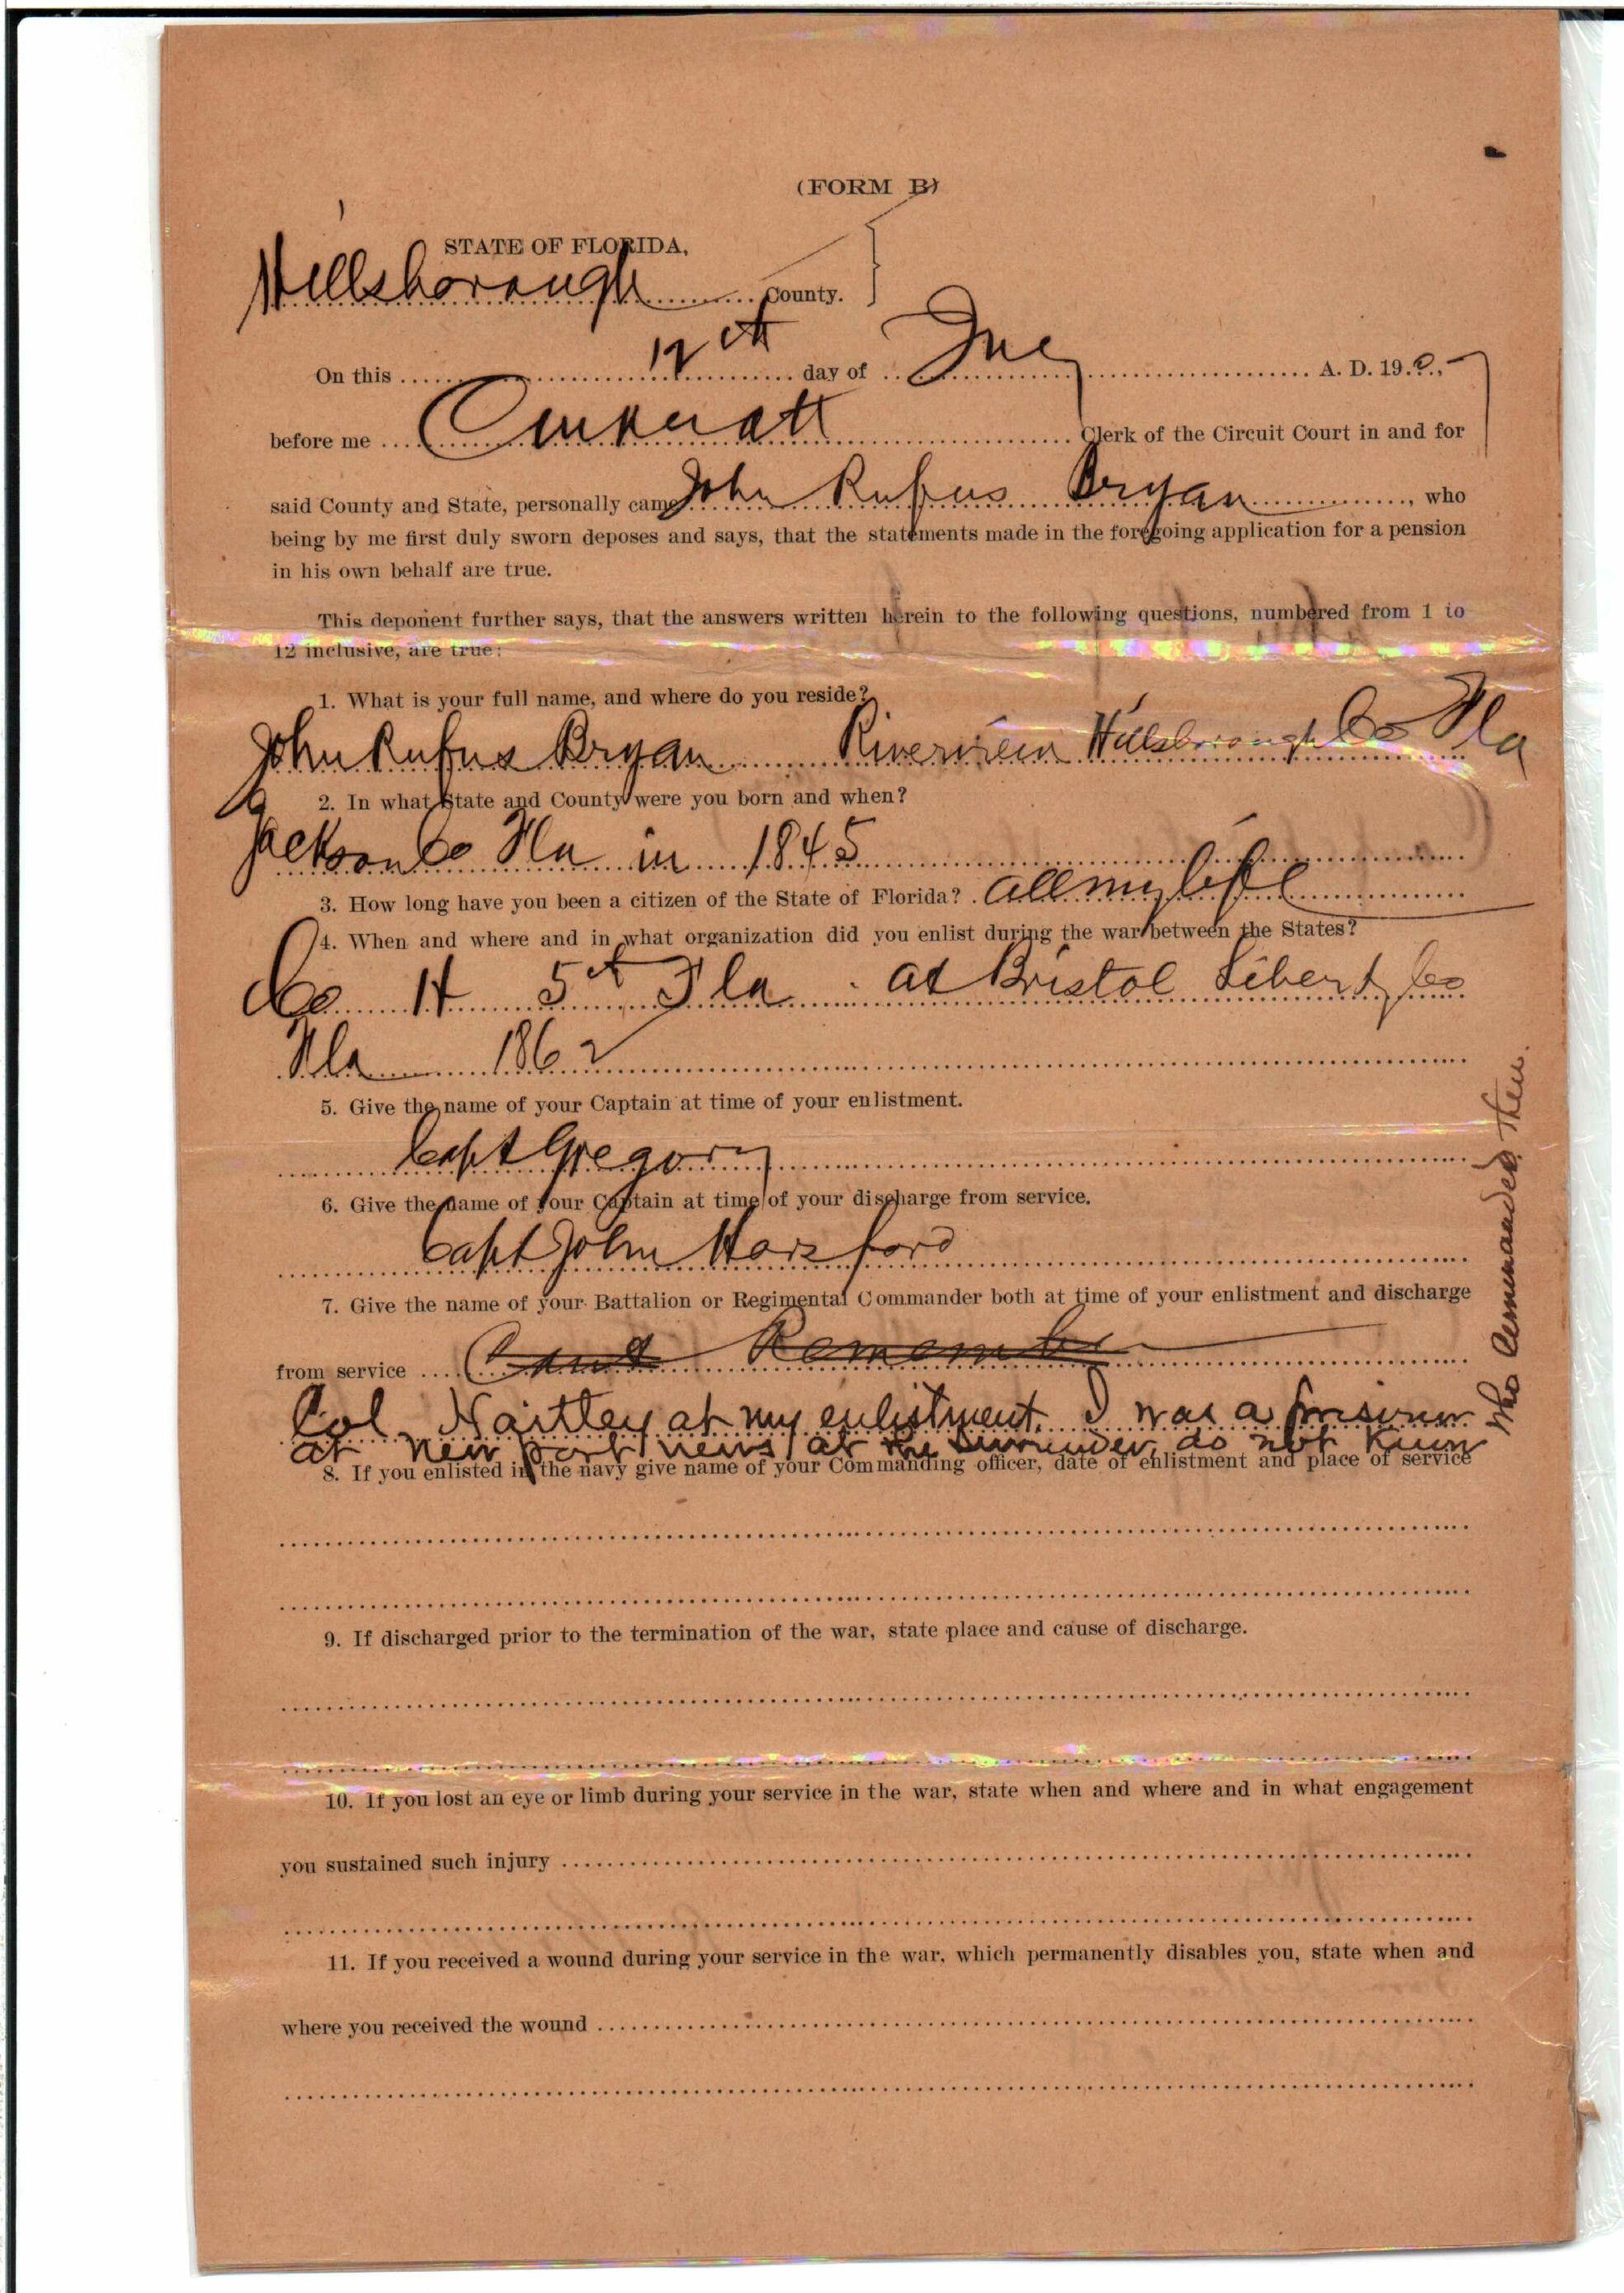 (FORM B)
STATE OF FLORIDA,
Hillsborough County.
On this 12th day of A. D. 190
before me Clerk of the Circuit Court in and for
said County and State, personally came John Rufus Bryan, who
being by me first duly sworn deposes and says, that the statements made in the foregoing application for a pension
in his own behalf are true.
This deponent further says, that the answers written herein to the following questions, numbered from 1 to
12 inclusive, are true:
1. What is your full name, and where do you reside?
John Rufus Bryan Riverview Hillsborough Co Fla
2. In what State and County were you born and when?
Jackson Co Fla in 1845
3. How long have you been a citizen of the State of Florida? all my life
4. When and where and in what organization did you enlist during the war between the States?
Co H 5th Fla at Bristol Liberty Co
Fla 1862
5. Give the name of your Captain at time of your enlistment.
Capt Gregory
6. Give the name of your Captain at time of your discharge from service.
Capt John
7. Give the name of your Battalion or Regimental Commander both at time of your enlistment and discharge
from service Cant Remember
Col at my enlistment. I was a prisoner
at new port news at the surrender, do not know
who commanded then.
8. If you enlisted in the navy give name of your Commanding officer, date of enlistment and place of service
9. If discharged prior to the termination of the war, state place and cause of discharge.
10. If you lost an eye or limb during your service in the war, state when and where and in what engagement
you sustained such injury
11. If you received a wound during your service in the war, which permanently disables you, state when and
where you received the wound